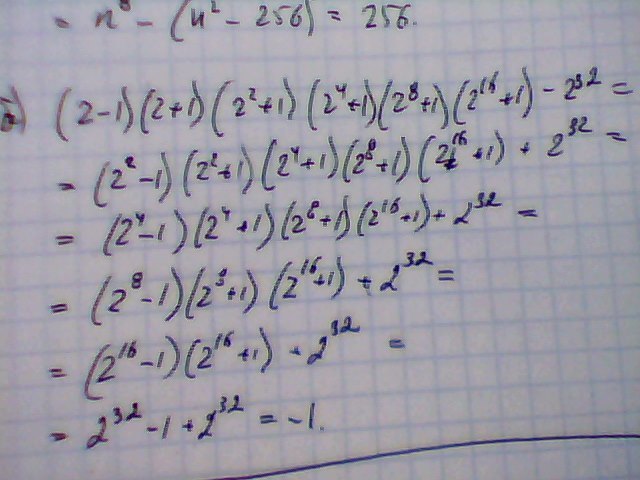 = n⁸ - (n² - 256) = 256.
б) (2-1)(2+1)(2²+1)(2⁴+1)(2⁸+1)(2¹⁶+1) - 2³² =
= (2²-1)(2²+1)(2⁴+1)(2⁸+1)(2¹⁶+1) + 2³² =
= (2⁴-1)(2⁴+1)(2⁸+1)(2¹⁶+1) + 2³² =
= (2⁸-1)(2⁸+1)(2¹⁶+1) + 2³² =
= (2¹⁶-1)(2¹⁶+1) + 2³² =
= 2³² - 1 + 2³² = -1.